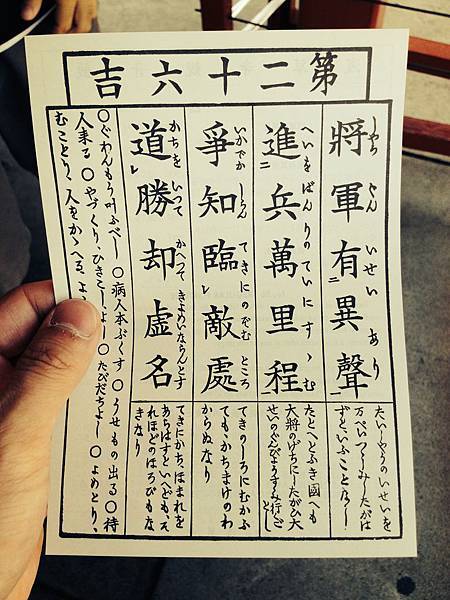 第二十六吉
將軍有異聲
しやうぐん いせい あり
たいしやうのいせいを
万ぺいつゝしみしたがは
ずといふことなし
進兵萬里程
へいをばんりのていにすゝむ
たとへとふき國へも
大將のげぢにしたがひ大
せいのぐびようすゝみ行ごとし
爭知臨敵處
いかでか しらん てきにのぞむ ところ
てきのしろにむかふ
てもかちまけのわ
からぬなり
道勝却虚名
かちを いつて かへつて きよめいならんとす
てきにかち、ほまれを
あらはすといへども、そ
れほどのほろびもな
きなり
○ぐわんもう叶ふべし ○病人本ぷくす ○うせもの出る ○待
人来る ○やづくり、ひきこしよし ○たびだちよし ○よめとり、
むことり、人をかゝへる、よ